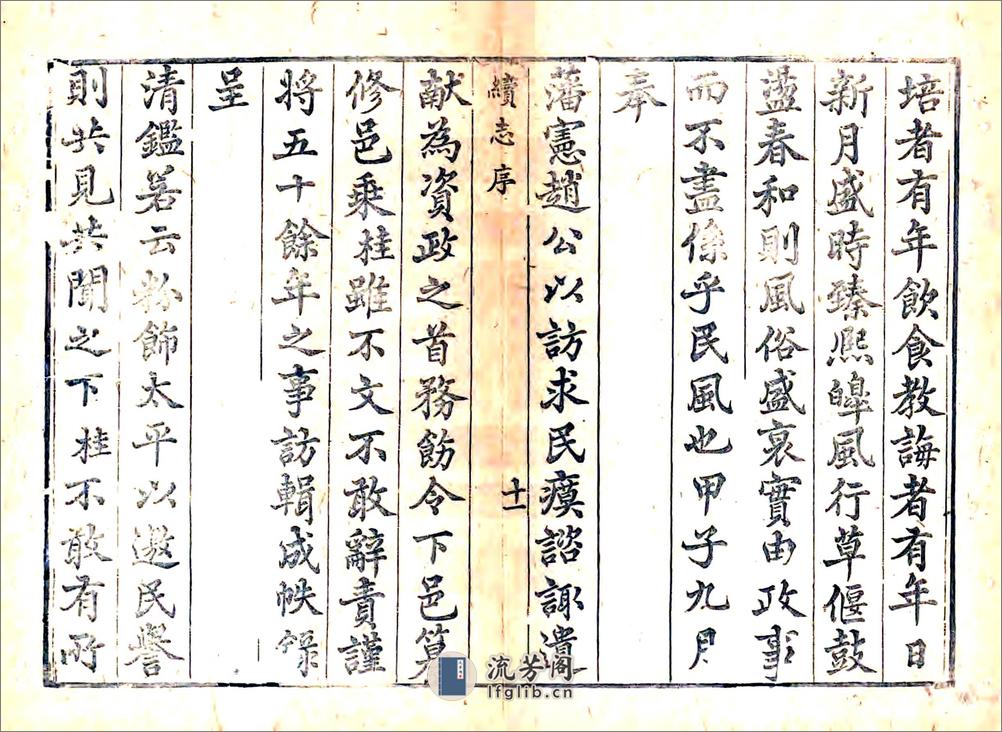 培者有年飲食教誨者有年日
新月盛時臻熈皥風行草偃鼓
盪春和則風俗盛衰實由政事
而不盡係乎民風也甲子九月
奉
藩憲趙公以訪求民瘼諮諏遺
續志序 十一
献為資政之首務飭令下邑纂
修邑乗桂雖不文不敢辭責謹
將五十餘年之事訪輯成帙錄
呈
清鑑若云粉飾太平以邀民譽
則共見共聞之下桂不敢有所
流芳閣
lfglib.cn